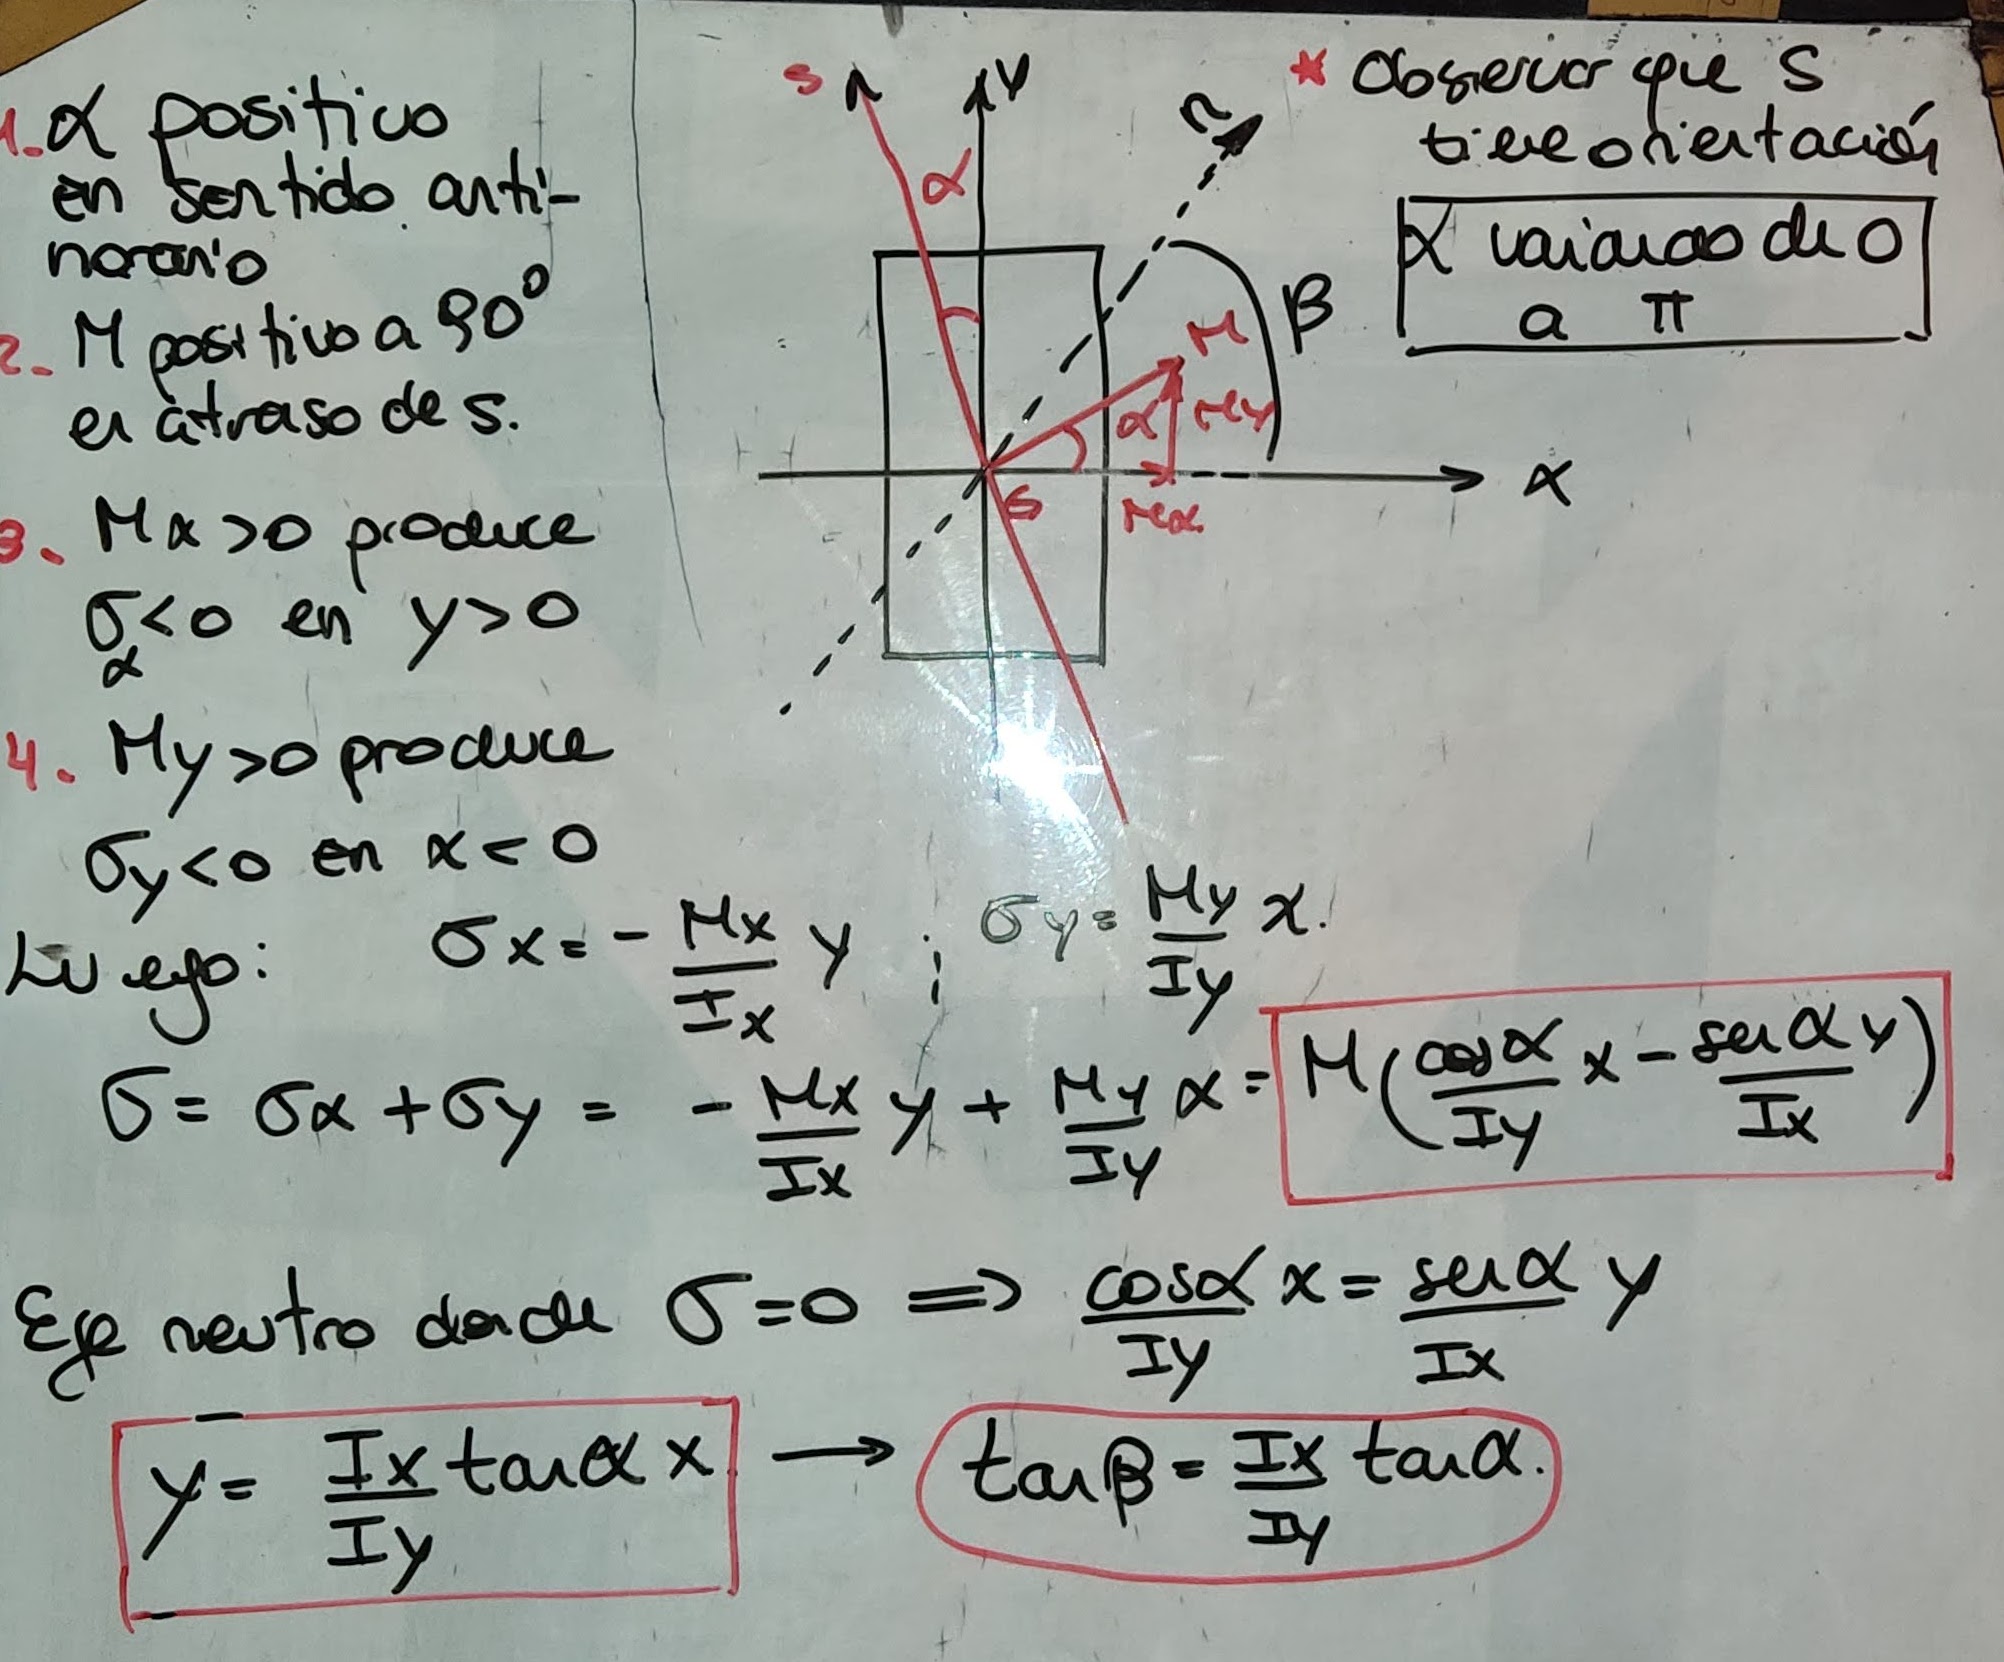 1. α positivo
en sentido anti-
horario
2. M positivo a 90°
en atraso de s.
3. Mx >0 produce
σx<0 en y>0
4. My>0 produce
σy<0 en x<0
s
y
n
α
β
M
α
My
G
Mx
x
* Observar que S
tiene orientación
α variando de 0
a π
Luego: σx = - Mx/Ix y ; σy = My/Iy x.
σ = σx + σy = - Mx/Ix y + My/Iy x = M(cosα/Iy x - senα/Ix y)
Eje neutro donde σ=0 => cosα/Iy x = senα/Ix y
y = Ix/Iy tanα x → tanβ = Ix/Iy tanα.